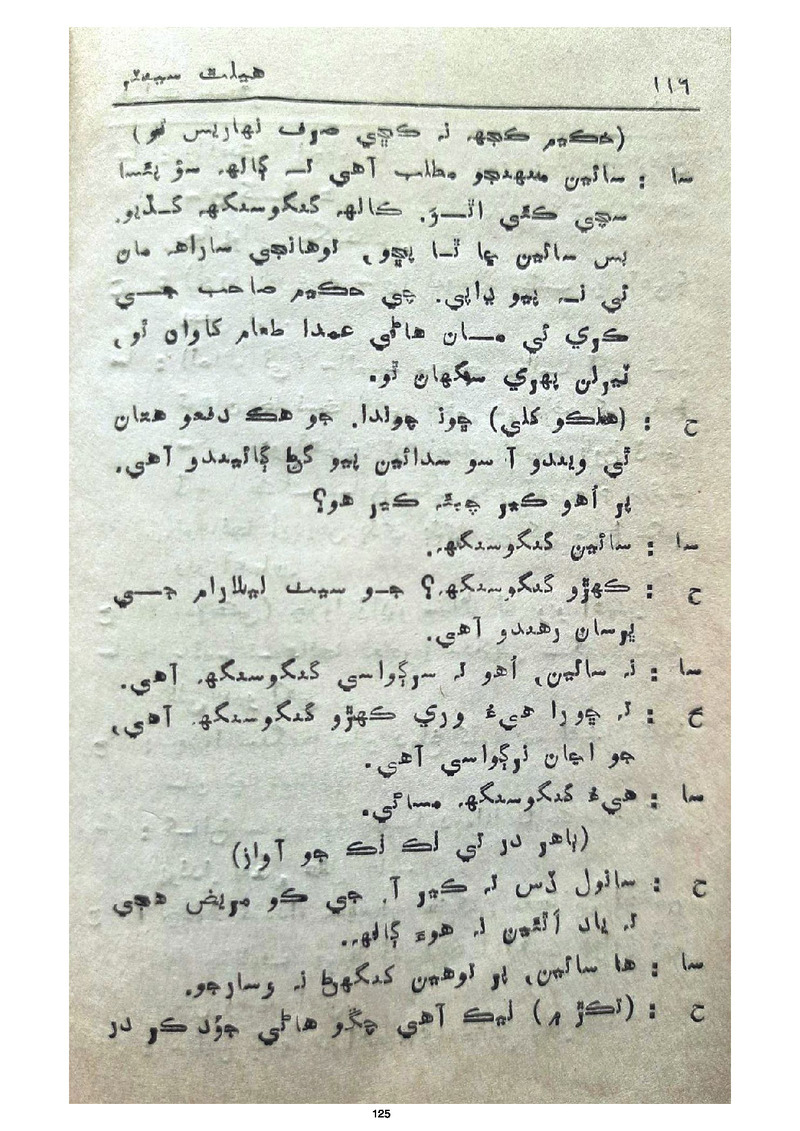 ١١٦ هيلٿ سيڪٽر
(حڪيم ڪجهہ نہ ڪڇي صرف نهاريس ٿو)
سا : سائين منهنجو مطلب آهي تہ ڳالهہ سؤ پئسا
سچي ڪئي اٿئو. ڪالهہ گنگوسنگهہ گڏيو.
بس سائين ڇا ٿا پڇو، توهانجي ساراهہ مان
ئي نہ پيو ڍاپي. چي حڪيم صاحب جي
ڪري ئي مسان هاڻي عمدا طعام کاوان ٿو،
ٽيرلن پهري سگهان ٿو.
ح : (هلڪو کلي) ڇونہ چوندا. جو هڪ دفعو هتان
ٿي ويندو آ سو سدائين پيو گڻ ڳائيندو آهي.
پر اُهو ڪير چيئہ ڪير هو؟
سا : سائين گنگوسنگهہ.
ح : ڪهڙو گنگوسنگهہ؟ جو سيٺ ليلارام جي
ڀرسان رهندو آهي.
سا : نہ سائين، اُهو تہ سرڳواسي گنگوسنگهہ آهي.
ح : تہ ڇورا هيءُ وري ڪهڙو گنگوسنگهہ آهي،
جو اڃان نرڳواسي آهي.
سا : هيءُ گنگوسنگهہ مساڻي.
(ٻاهر در تي ٺڪ ٺڪ جو آواز)
ح : سانول ڏس تہ ڪير آ. جي ڪو مريض هجي
تہ ياد اٿئين تہ هوءَ ڳالهہ.
سا : ها سائين، پر توهين کنگهڻ نہ وسارجو.
ح : (تڪڙ ۾) ٺيڪ آهي چڱو هاڻي جؤد ڪر در
125